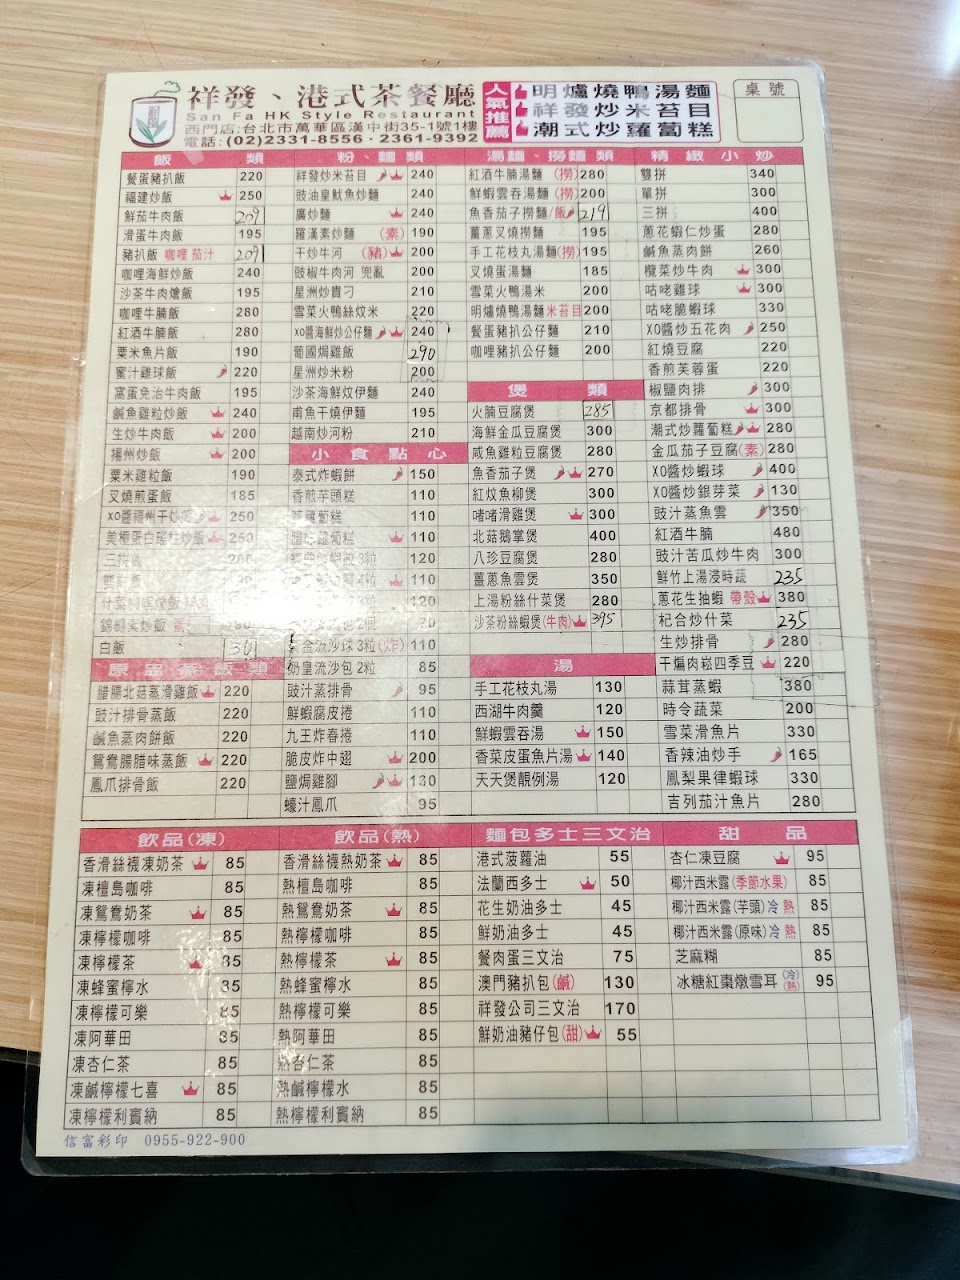 祥發、港式茶餐廳
San Fa HK Style Restaurant
西門店:台北市萬華區漢中街35-1號1樓
電話:(02)2331-8556·2361-9392
人氣推薦
明爐燒鴨湯麵
祥發炒米苔目
潮式炒蘿蔔糕
桌號
飯類
餐蛋豬扒飯 220
福建炒飯 250
鮮茄牛肉飯 209
滑蛋牛肉飯 195
豬扒飯 咖哩 茄汁 209
咖哩海鮮炒飯 240
沙茶牛肉燴飯 195
咖哩牛腩飯 280
紅酒牛腩飯 280
粟米魚片飯 190
蜜汁雞球飯 220
窩蛋免治牛肉飯 195
鹹魚雞粒炒飯 240
生炒牛肉飯 200
揚州炒飯 200
粟米雞粒飯 190
叉燒煎蛋飯 185
XO醬福州干炒飯 250
美極蛋白瑤柱炒飯 250
白飯 30
原盅蒸飯類
腊腸北菇蒸滑雞飯 220
豉汁排骨蒸飯 220
鹹魚蒸肉餅飯 220
鴛鴦腸腊味蒸飯 220
鳳爪排骨飯 220
粉、麵類
祥發炒米苔目 240
豉油皇魷魚炒麵 240
廣炒麵 240
羅漢素炒麵 (素) 190
干炒牛河 (豬) 200
豉椒牛肉河 兜亂 200
星洲炒貴刁 210
雪菜火鴨絲炆米 220
XO醬海鮮炒公仔麵 240
葡國焗雞飯 290
星洲炒米粉 200
沙茶海鮮炆伊麵 240
甫魚干燒伊麵 195
越南炒河粉 210
小食點心
泰式炸蝦餅 150
香煎芋頭糕 110
蘿蔔糕 110
腊味蘿蔔糕 110
3粒 120
4粒 110
120
2個 70
黃金流沙球 3粒(炸) 110
奶皇流沙包 2粒 85
豉汁蒸排骨 95
鮮蝦腐皮捲 110
九王炸春捲 110
脆皮炸中翅 200
鹽焗雞腳 130
蠔汁鳳爪 95
湯麵、撈麵類
紅酒牛腩湯麵 (撈) 280
鮮蝦雲吞湯麵 (撈) 200
魚香茄子撈麵/飯 219
薑蔥叉燒撈麵 195
手工花枝丸湯麵(撈) 195
叉燒蛋湯麵 185
雪菜火鴨湯米 200
明爐燒鴨湯麵米苔目 200
餐蛋豬扒公仔麵 210
咖哩豬扒公仔麵 200
煲類
火腩豆腐煲 285
海鮮金瓜豆腐煲 300
咸魚雞粒豆腐煲 280
魚香茄子煲 270
紅炆魚柳煲 300
啫啫滑雞煲 300
北菇鵝掌煲 400
八珍豆腐煲 280
薑蔥魚雲煲 350
上湯粉絲什菜煲 280
沙茶粉絲蝦煲(牛肉) 395
湯
手工花枝丸湯 130
西湖牛肉羹 120
鮮蝦雲吞湯 150
香菜皮蛋魚片湯 140
天天煲靚例湯 120
精緻小炒
雙拼 340
單拼 300
三拼 400
蔥花蝦仁炒蛋 280
鹹魚蒸肉餅 260
欖菜炒牛肉 300
咕咾雞球 300
咕咾脆蝦球 330
XO醬炒五花肉 250
紅燒豆腐 220
香煎芙蓉蛋 220
椒鹽肉排 300
京都排骨 300
潮式炒蘿蔔糕 280
金瓜茄子豆腐(素) 280
XO醬炒蝦球 400
XO醬炒銀芽菜 130
豉汁蒸魚雲 350
紅酒牛腩 480
豉汁苦瓜炒牛肉 300
鮮竹上湯浸時蔬 235
蔥花生抽蝦 帶殼 380
杞合炒什菜 235
生炒排骨 280
干煸肉崧四季豆 220
蒜茸蒸蝦 380
時令蔬菜 200
雪菜滑魚片 330
香辣油炒手 165
鳳梨果律蝦球 330
吉列茄汁魚片 280
飲品(凍)
香滑絲襪凍奶茶 85
凍檀島咖啡 85
凍鴛鴦奶茶 85
凍檸檬咖啡 85
凍檸檬茶 85
凍蜂蜜檸水 85
凍檸檬可樂 85
凍阿華田 85
凍杏仁茶 85
凍鹹檸檬七喜 85
凍檸檬利賓納 85
飲品(熱)
香滑絲襪熱奶茶 85
熱檀島咖啡 85
熱鴛鴦奶茶 85
熱檸檬咖啡 85
熱檸檬茶 85
熱蜂蜜檸水 85
熱檸檬可樂 85
熱阿華田 85
熱杏仁茶 85
熱鹹檸檬水 85
熱檸檬利賓納 85
麵包多士三文治
港式菠蘿油 55
法蘭西多士 50
花生奶油多士 45
鮮奶油多士 45
餐肉蛋三文治 75
澳門豬扒包(鹹) 130
祥發公司三文治 170
鮮奶油豬仔包(甜) 55
甜品
杏仁凍豆腐 95
椰汁西米露(季節水果) 85
椰汁西米露(芋頭)冷 熱 85
椰汁西米露(原味)冷 熱 85
芝麻糊 85
冰糖紅棗燉雪耳(冷)(熱) 95
信富彩印 0955-922-900